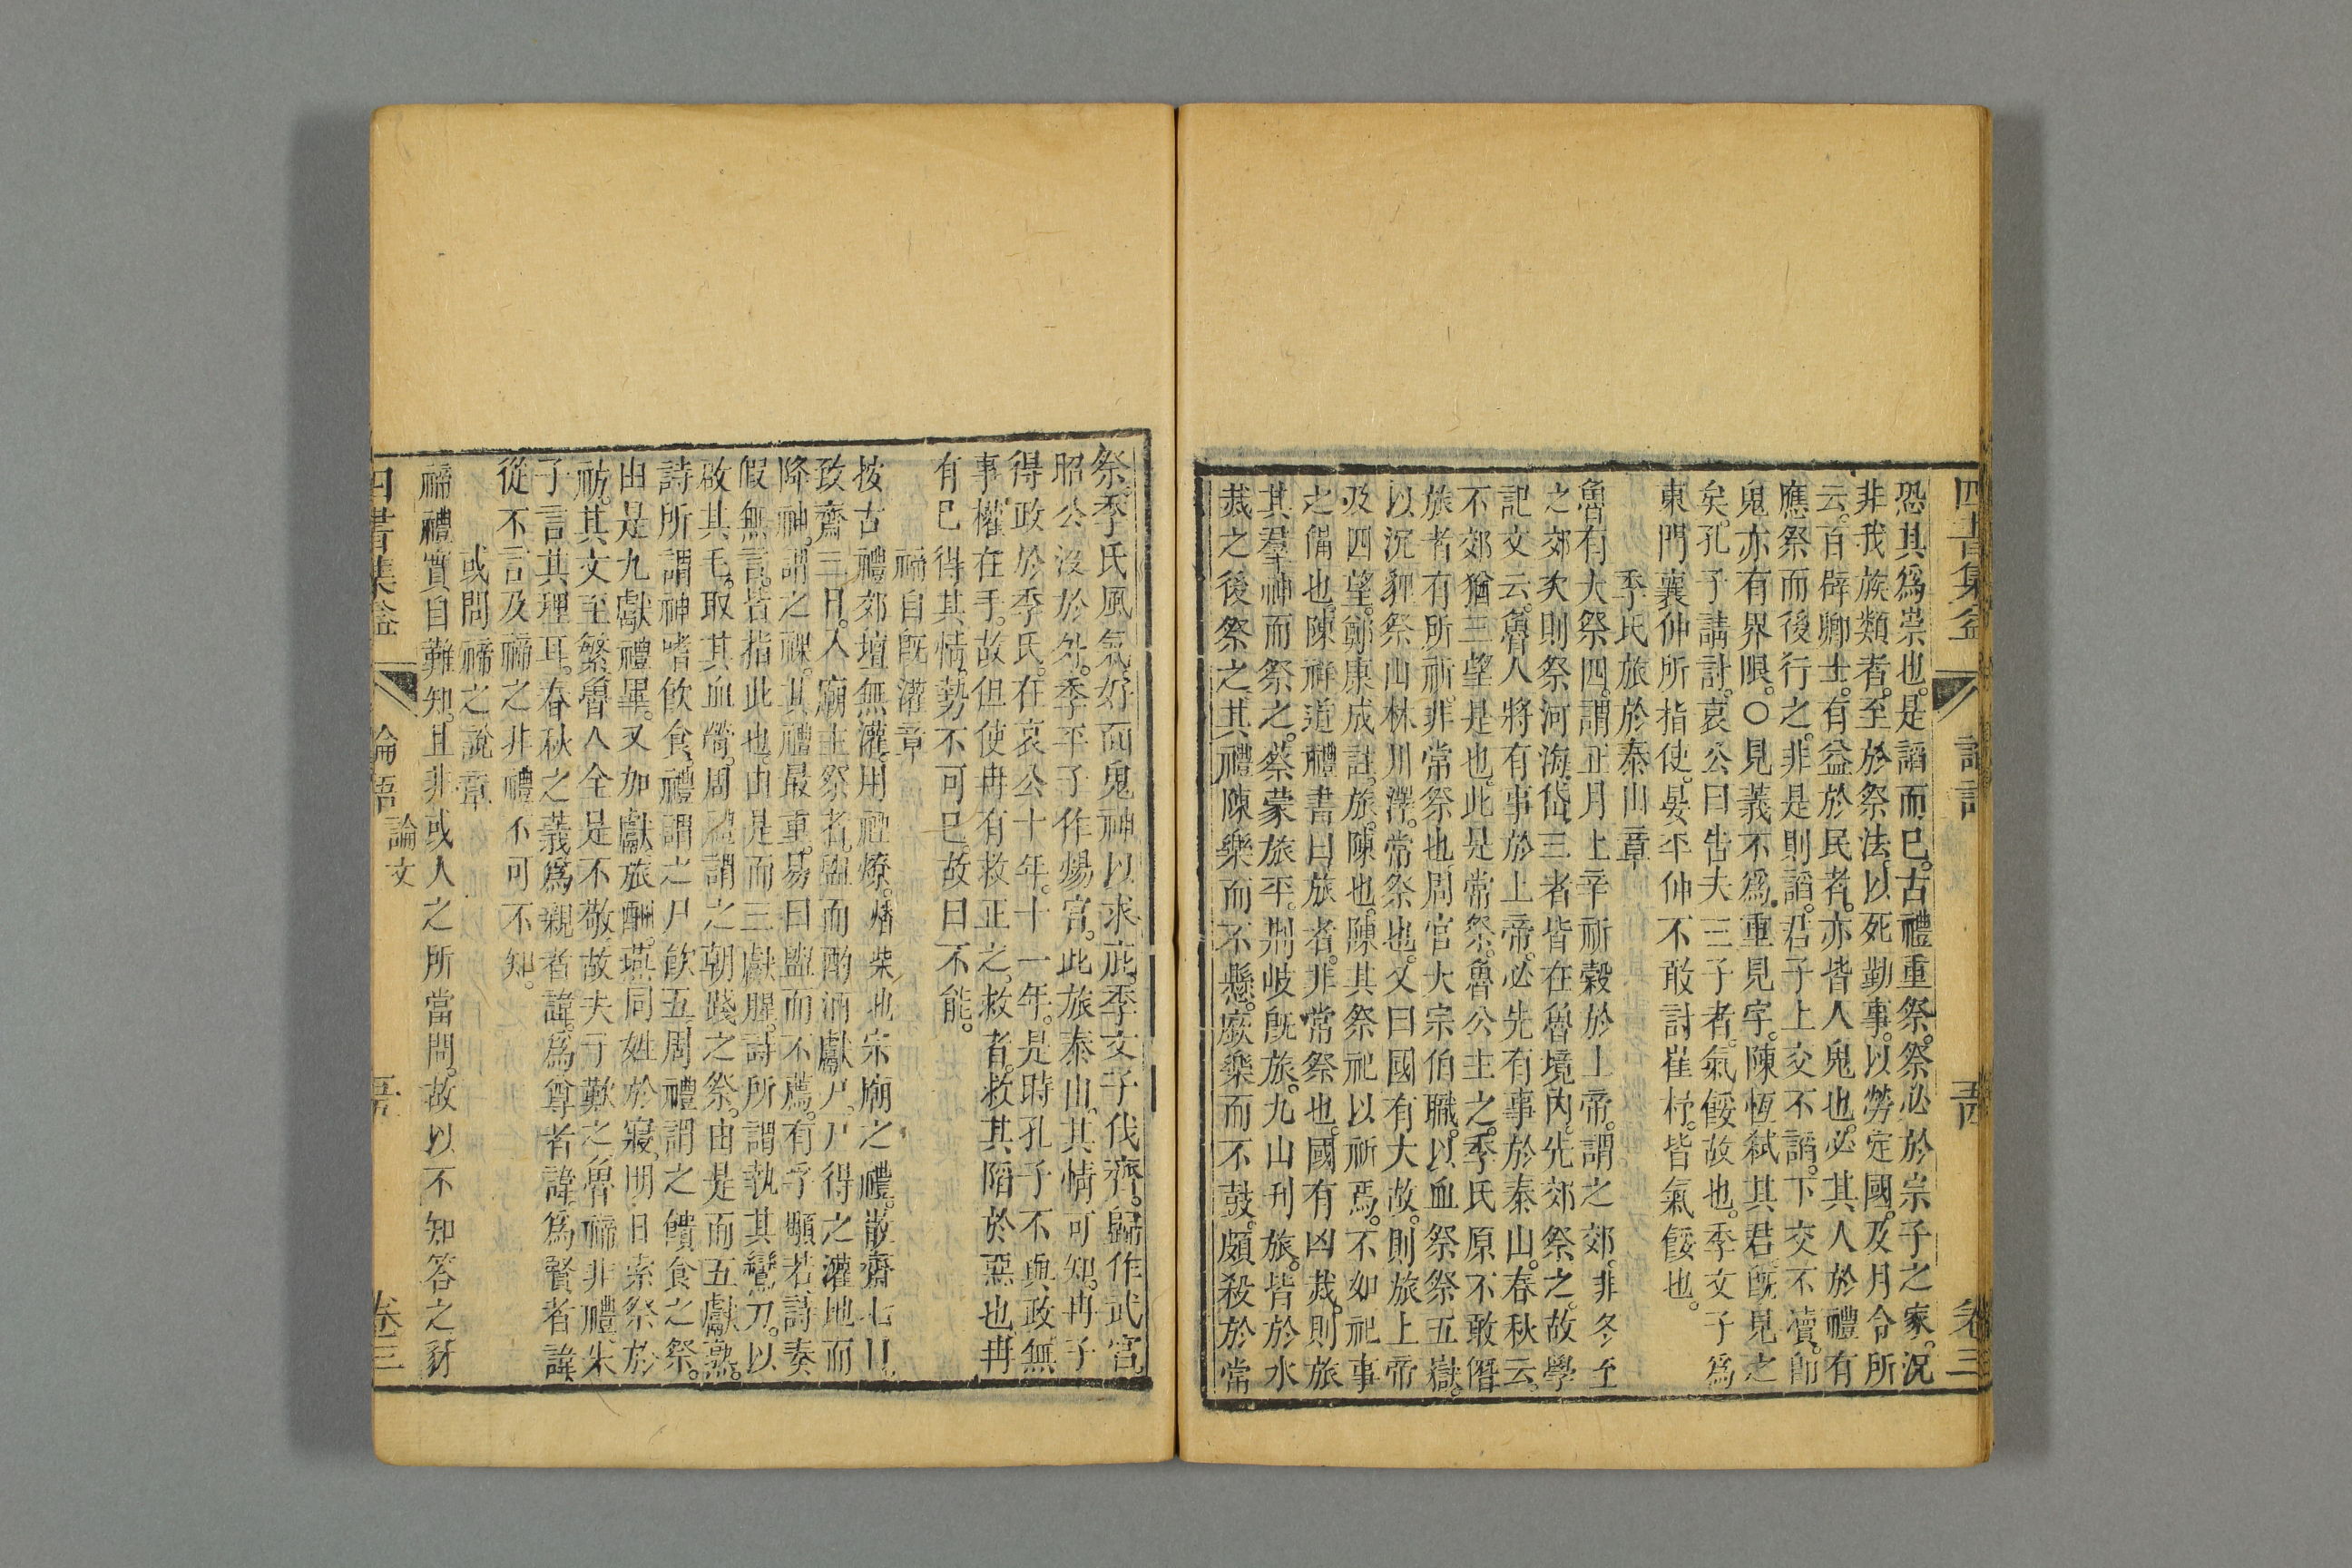 四書集益 論語 卷三
恐其爲祟也。是謟而已。古禮重祭。祭必於宗子之家。況
非我族類者。至於祭法。以死勤事。以勞定國。及月令所
云。百辟卿士。有益於民者。亦皆人鬼也。必其人於禮有
應祭而後行之。非是則謟。君子上交不謟。下交不瀆。卽
鬼亦有界限。○見義不爲。重見字。陳恆弑其君。旣見之
矣。孔子請討。哀公曰告夫三子者。氣餒故也。季文子爲
東門襄仲所指使。晏平仲不敢討崔杼。皆氣餒也。
季氏旅於泰山章
魯有大祭四。謂正月上辛祈穀於上帝。謂之郊。非冬至
之郊。次則祭河海岱。三者皆在魯境內。先郊祭之。故學
記文云。魯人將有事於上帝。必先有事於泰山。春秋云。
不郊猶三望是也。此是常祭。魯公主之。季氏原不敢僭
旅者有所祈。非常祭也。周官大宗伯職。以血祭祭五嶽。
以沉貍祭山林川澤。常祭也。又曰國有大故。則旅上帝
及四望。鄭康成註。旅陳也。陳其祭祀以祈焉。不如祀事
之備也。陳祥道禮書曰旅者。非常祭也。國有凶烖。則旅
其羣神而祭之。蔡蒙旅平。荆岐旣旅。九山刋旅。皆於水
烖之後祭之。其禮陳樂而不懸。廞樂而不鼓。頗殺於常
祭。季氏風氣好而鬼神以求庇。季文子伐齊。歸作武宮。
昭公沒於外。季平子作煬宮。此旅泰山。其情可知。冉子
得政於季氏。在哀公十年。十一年。是時孔子不與政。無
事權在手。故但使冉有救正之。救者。救其陷於惡也。冉
有已得其情。勢不可已。故曰不能。
禘自旣灌章
按古禮郊壇無灌。用禋燎。燔柴也。宗廟之禮。散齋七日
致齋三日。入廟主祭者。盥而酌酒獻尸。尸得之灌地而
降神。謂之祼。其禮最重。易曰盥而不薦。有孚顒若。詩奏
假無言。皆指此也。由是而三獻腥。詩所謂執其鸞刀。以
啟其毛。取其血膋。周禮謂之朝踐之祭。由是而五獻熟。
詩所謂神嗜飲食。禮謂之尸飲五。周禮謂之饋食之祭。
由是九獻禮畢。又加獻旅酬。燕同姓於寢。明日索祭於
祊。其文至繁。魯人全是不敬。故夫子歎之。魯禘非禮。朱
子言其理耳。春秋之義。爲親者諱。爲尊者諱。爲賢者諱。
從不言及禘之非禮。不可不知。
或問禘之說章
禘禮實自難知。且非或人之所當問。故以不知答之。豸
四書集益 論語 論文 卷三